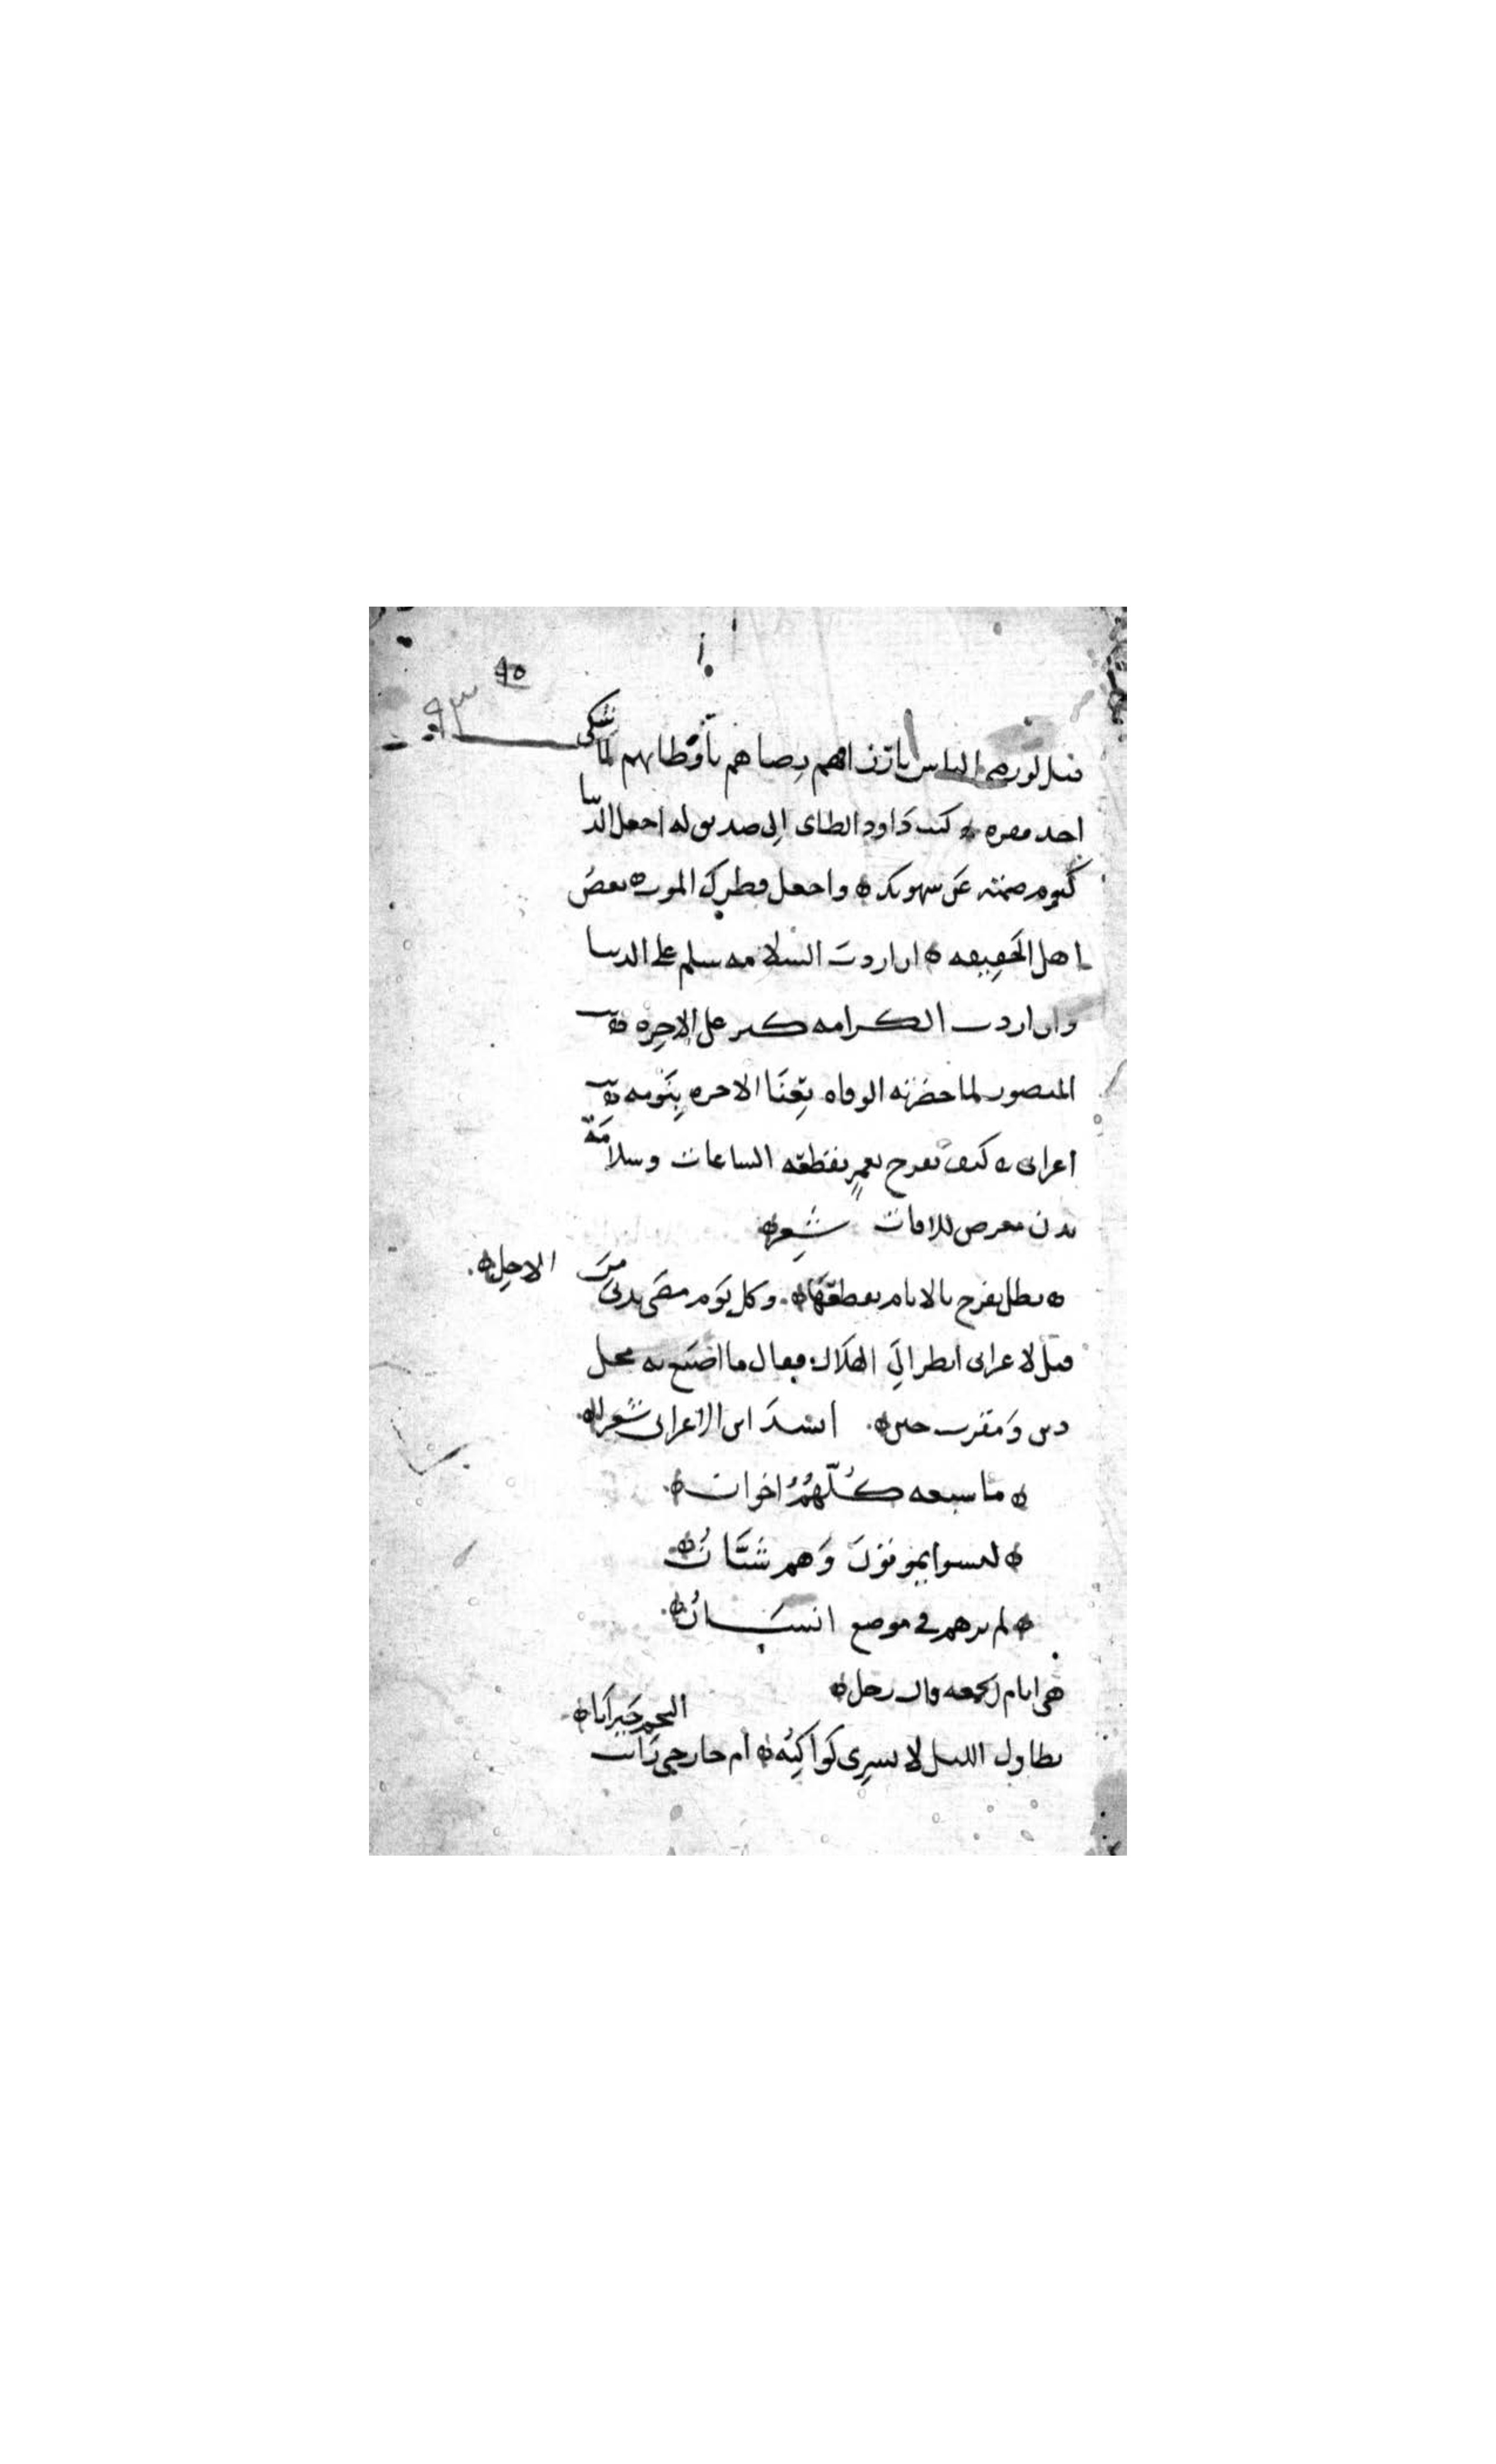 ٩٥
٩٣
قيل لو رضى الناس بارزاقهم رضاهم باوطانهم لما شكى
احد فقره كتب داود الطاى الى صديق له اجعل الدنيا
كيوم صمته عن شهوتك واجعل فطرك الموت بعض
اهل الحقيقه ان اردت السلامه سلم على الدنيا
وان اردت الكرامه كبر على الاخره
المنصور لما حضرته الوفاه بعنا الاخره بنومه
اعرابى كيف تفرح بعمر تقطعه الساعات وسلامة
بدن معرض للافات شعر
نظل نفرح بالايام نقطعها وكل يوم مضى يدنى من الاجل
قيل لاعرابى انظر الى الهلال فقال ما اصنع به محل
دين ومقرب حين انشد ابن الاعرابى شعر
ما سبعه كلهم اخوان
ليسوا يموتون وهم شتان
لم يرهم فى موضع انسان
هى ايام الجمعه وقال رجل
تطاول الليل لا تسرى كواكبه ام حار حتى رأيت النجم حيرانا